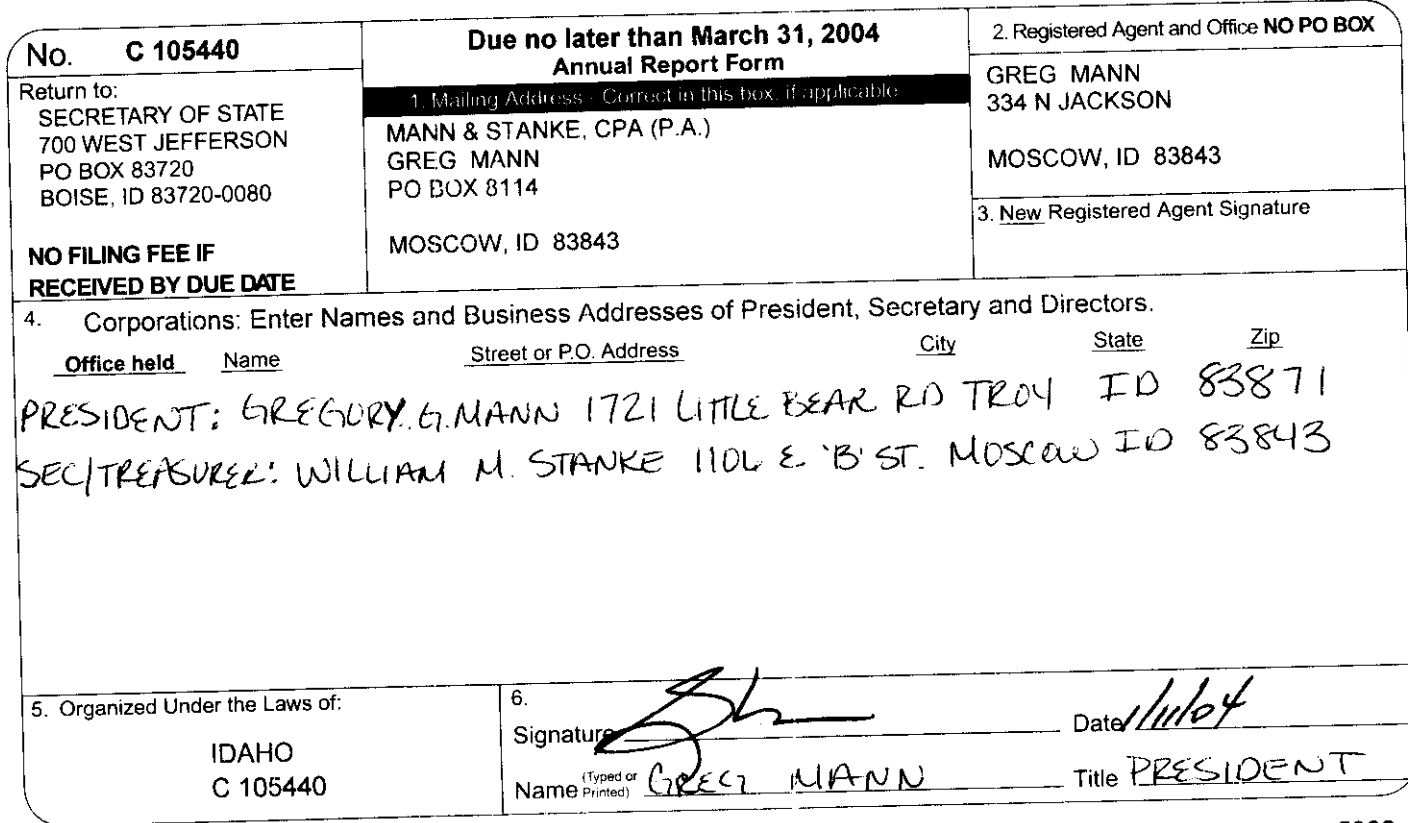 No. C 105440
Return to:
SECRETARY OF STATE
700 WEST JEFFERSON
PO BOX 83720
BOISE, ID 83720-0080
NO FILING FEE IF
RECEIVED BY DUE DATE
Due no later than March 31, 2004
Annual Report Form
1. Mailing Address - Correct in this box, if applicable
MANN & STANKE, CPA (P.A.)
GREG MANN
PO BOX 8114
MOSCOW, ID 83843
2. Registered Agent and Office NO PO BOX
GREG MANN
334 N JACKSON
MOSCOW, ID 83843
3. New Registered Agent Signature
4. Corporations: Enter Names and Business Addresses of President, Secretary and Directors.
Office held Name Street or P.O. Address City State Zip
PRESIDENT: GREGORY G. MANN 1721 LITTLE BEAR RD TROY ID 83871
SEC/TREASURER: WILLIAM M. STANKE E 'B' ST. MOSCOW ID 83843
5. Organized Under the Laws of:
IDAHO
C 105440
6.
Signature
Date 1/11/04
Name (Typed or Printed) GREG MANN
Title PRESIDENT